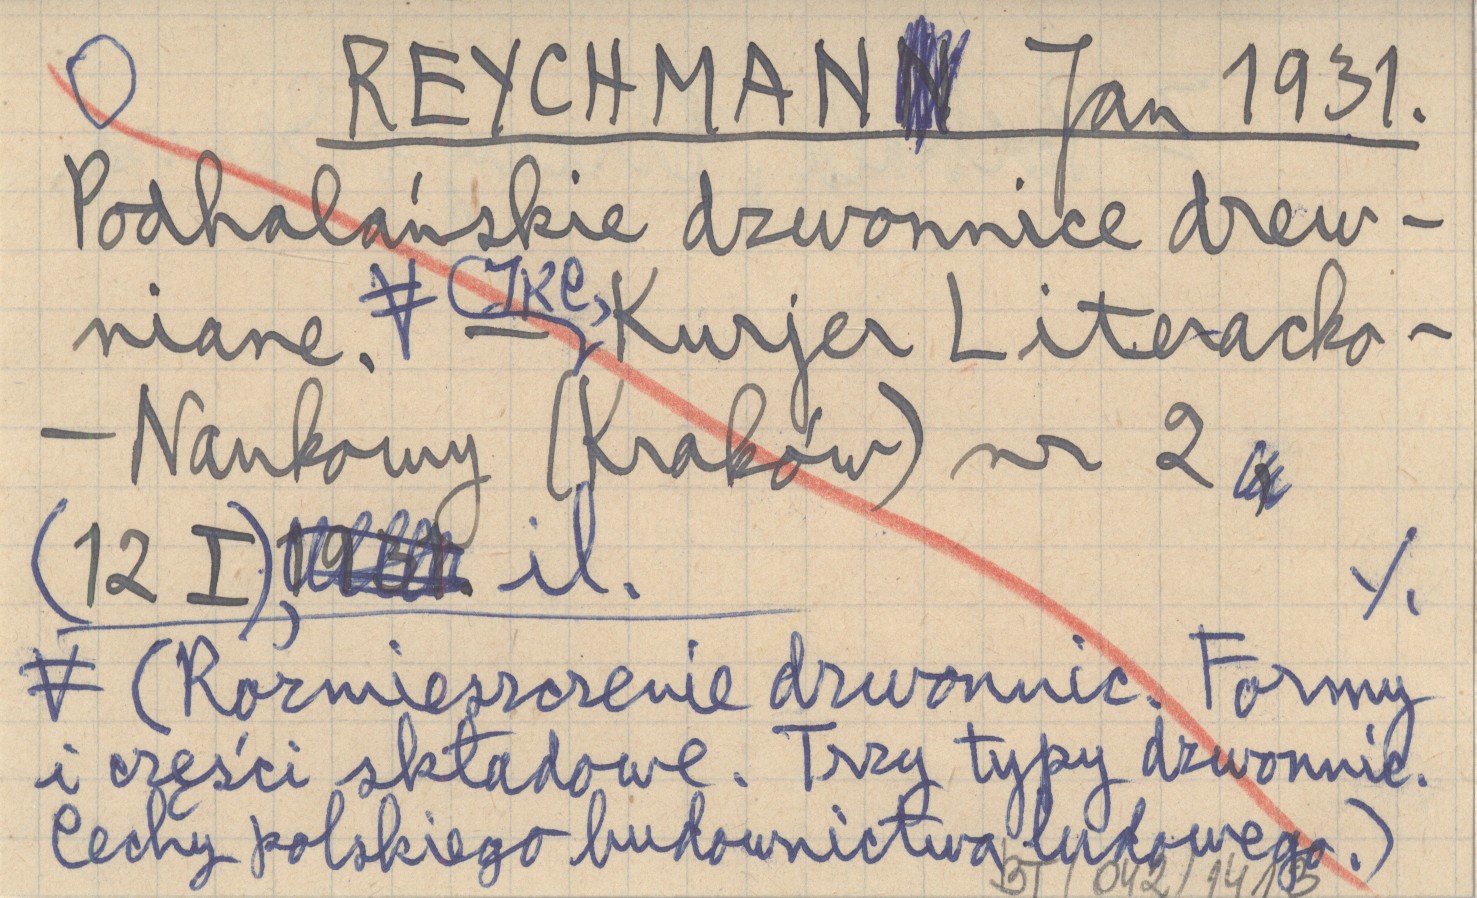 REYCHMAN Jan 1931.
Podhalańskie dzwonnice drew-
niane. (IKC, Kurjer Literacko-
-Naukowy (Kraków) nr 2
(12 I), il.
%.
(Rozmieszczenie dzwonnic. Formy
i części składowe. Trzy typy dzwonnic.
Cechy polskiego budownictwa ludowego.)
BT/042/1413